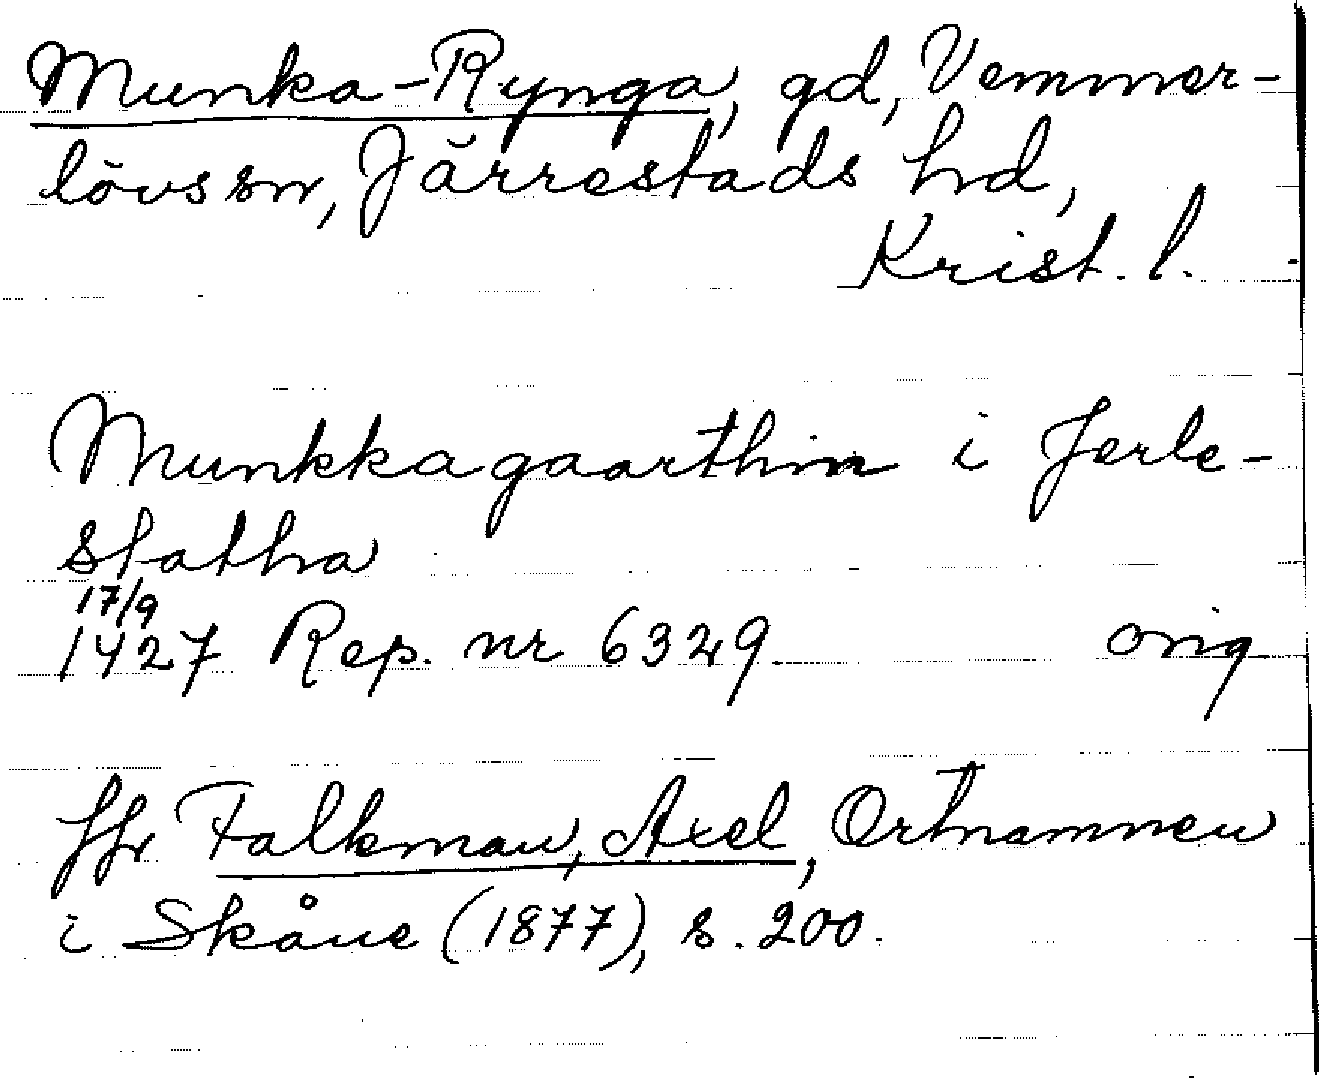 Munka-Rynga, gd, Vemmer-
lövs sn, Järrestads hd,
Krist. l.
Munkkagaarthin i Jerle-
statha
17/9
1427 Rep. nr 6329 orig
Jfr Falkman, Axel, Ortnamnen
i Skåne (1877), s. 200.